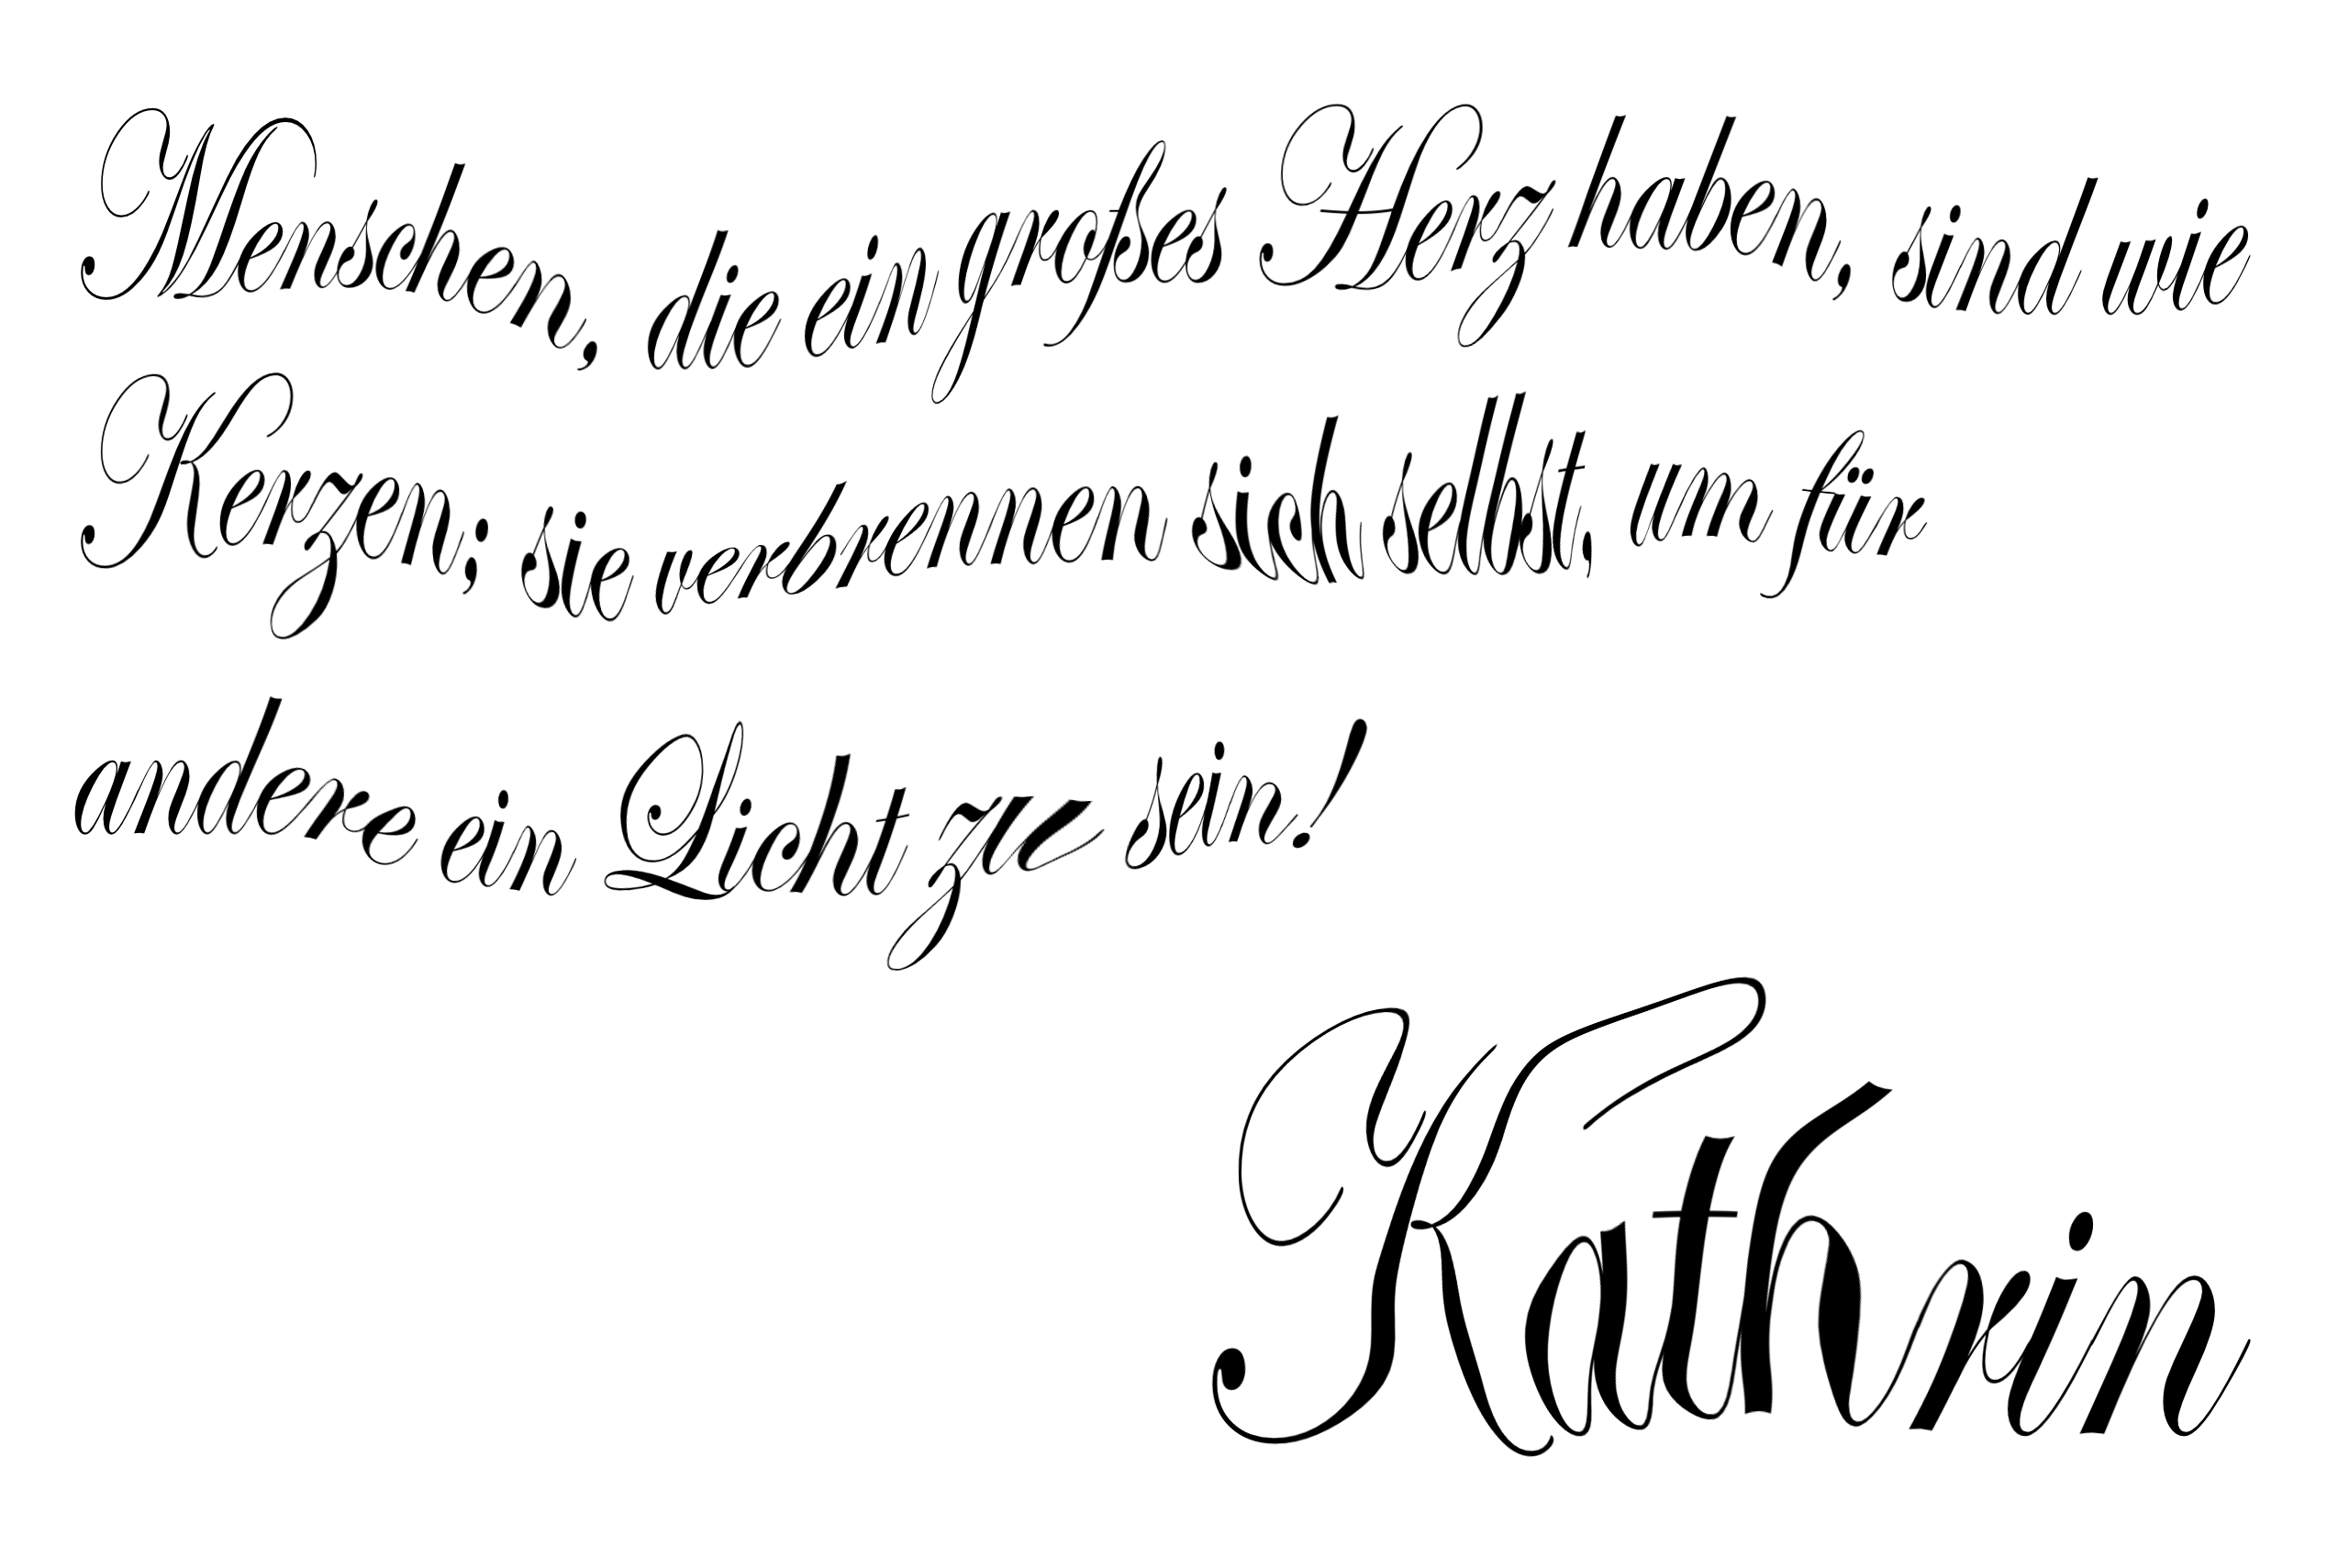 Menschen, die ein großes Herz haben, sind wie
Kerzen; sie verbrennen sich selbst, um für
andere ein Licht zu sein!
Kathrin